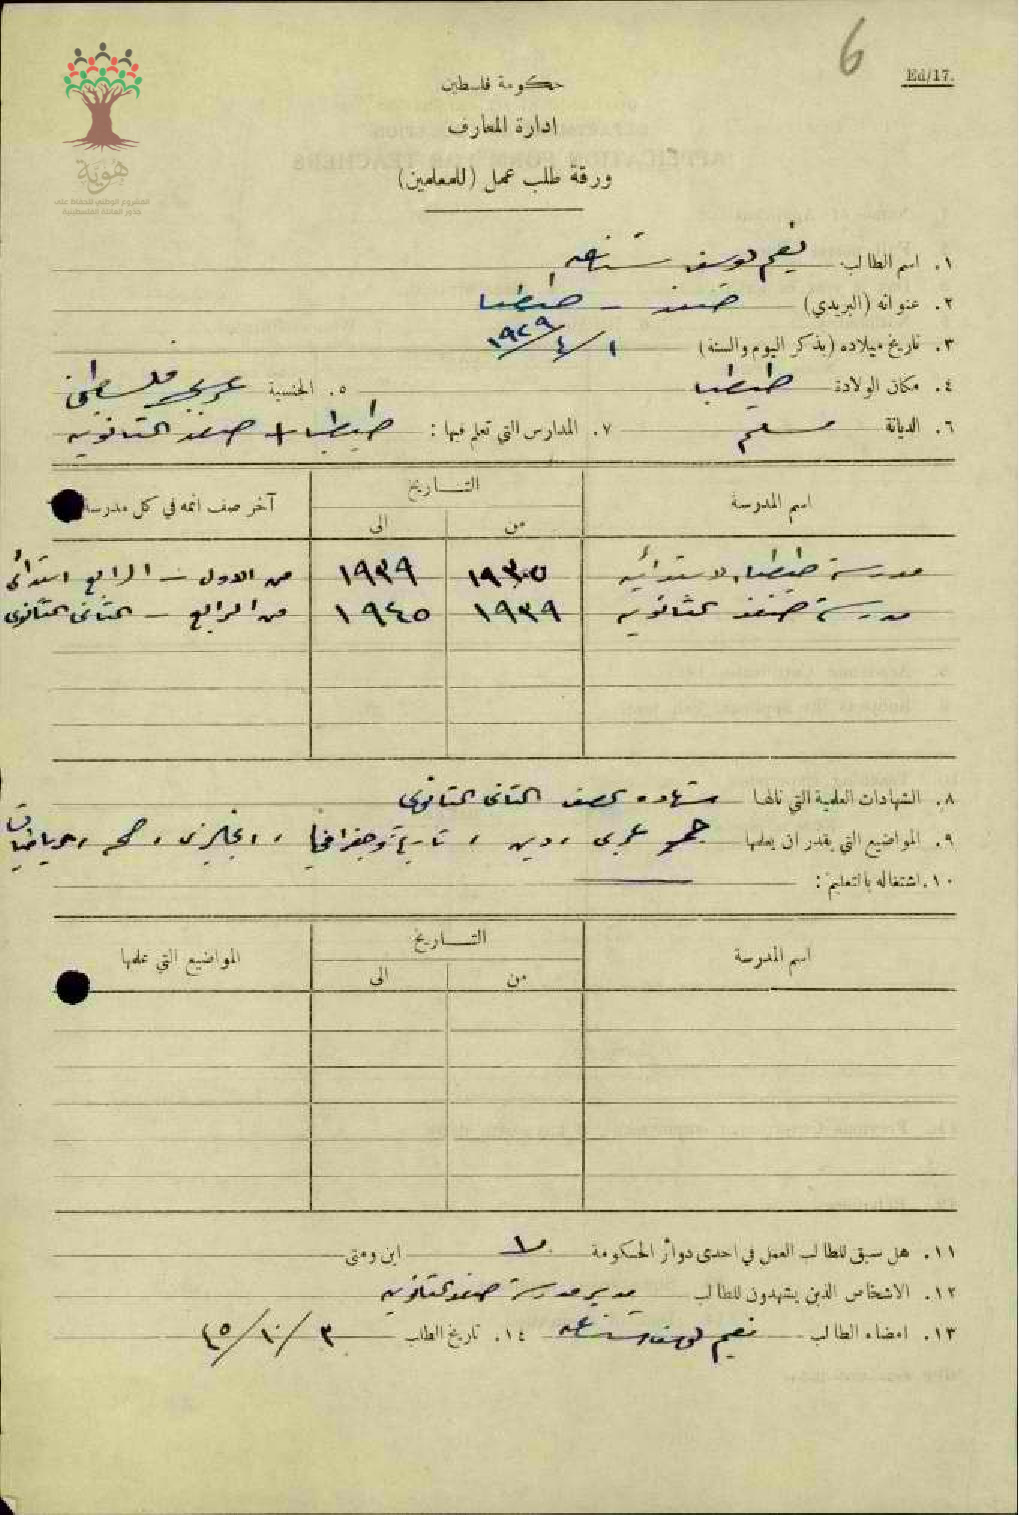 6
Ed/17.
حكومة فلسطين
ادارة المعارف
ورقة طلب عمل (للمعلمين)
هوية
المشروع الوطني للحفاظ على
جذور العائلة الفلسطينية
١. اسم الطالب نعيم يوسف شناعه
٢. عنوانه (البريدي) صفد - طيطبا
٣. تاريخ ميلاده (بذكر اليوم والسنة) ١/٤/١٩٢٩
٤. مكان الولادة طيطبا ٥. الجنسية عربي فلسطيني
٦. الديانة مسلم ٧. المدارس التي تعلم فيها: طيطبا + صفد الثانويه
اسم المدرسة التاريخ آخر صف اتمه في كل مدرسة
من الى
مدرسة طيطبا الابتدائيه ١٩٣٥ ١٩٣٩ من الاول - الرابع ابتدائي
مدرسة صفد الثانويه ١٩٣٩ ١٩٤٥ من الرابع - الثاني الثانوي
٨. الشهادات العلمية التي نالها شهاده الصف الثاني الثانوي
٩. المواضيع التي يقدر ان يعلمها عربي، دين، تاريخ وجغرافيا، انجليزي، صحه، رياضيات
١٠. اشتغاله بالتعليم:
اسم المدرسة التاريخ المواضيع التي علمها
من الى
١١. هل سبق للطالب العمل في احدى دوائر الحكومة لا اين ومتى
١٢. الاشخاص الذين يشهدون للطالب مدير مدرسة صفد الثانويه
١٣. امضاء الطالب نعيم يوسف شناعه ١٤. تاريخ الطلب ٣/١٠/٤٥